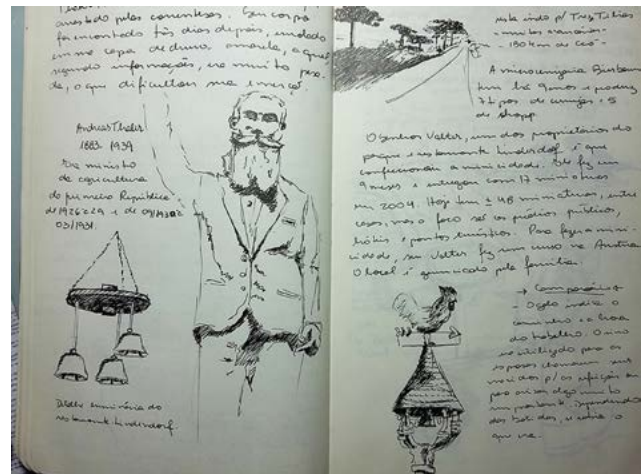 arrastado pelas correntezas. Seu corpo
foi encontrado três dias depois, enrolado
em uma capa de chuva, amarela, a qual
segundo informações, era muito pesa-
da, o que dificultou sua
Andreas Thaler
1883 1939
Ex ministro
da agricultura
da primeira República
de 1926 a 29 e de 09/1930 a
03/1931.
restaurante Lindendorf.
indo p/ Treze Tílias
- muitas araucárias -
A microcervejaria Bierbaum
tem há 9 anos e produz
7 tipos de cerveja e 5
de chopp.
O senhor Valter, um dos proprietários do
parque e restaurante Lindendorf é que
confeccionou a minicidade. Ele fez em
9 meses e entregou com 17 miniaturas
em 2004. Hoje tem ± 48 miniaturas, entre
casas, mas o foco são os prédios públicos,
hotéis e pontos turísticos. Para fazer a mini-
cidade, seu Valter fez um curso na Áustria.
O local é gerenciado pela família.
- O galo indica o
caminho e a hora
do trabalho. O sino
era utilizado para as
esposas chamarem seus
maridos p/ as refeições ou
para avisar algo muito
importante. Dependendo
das batidas, o
que era.